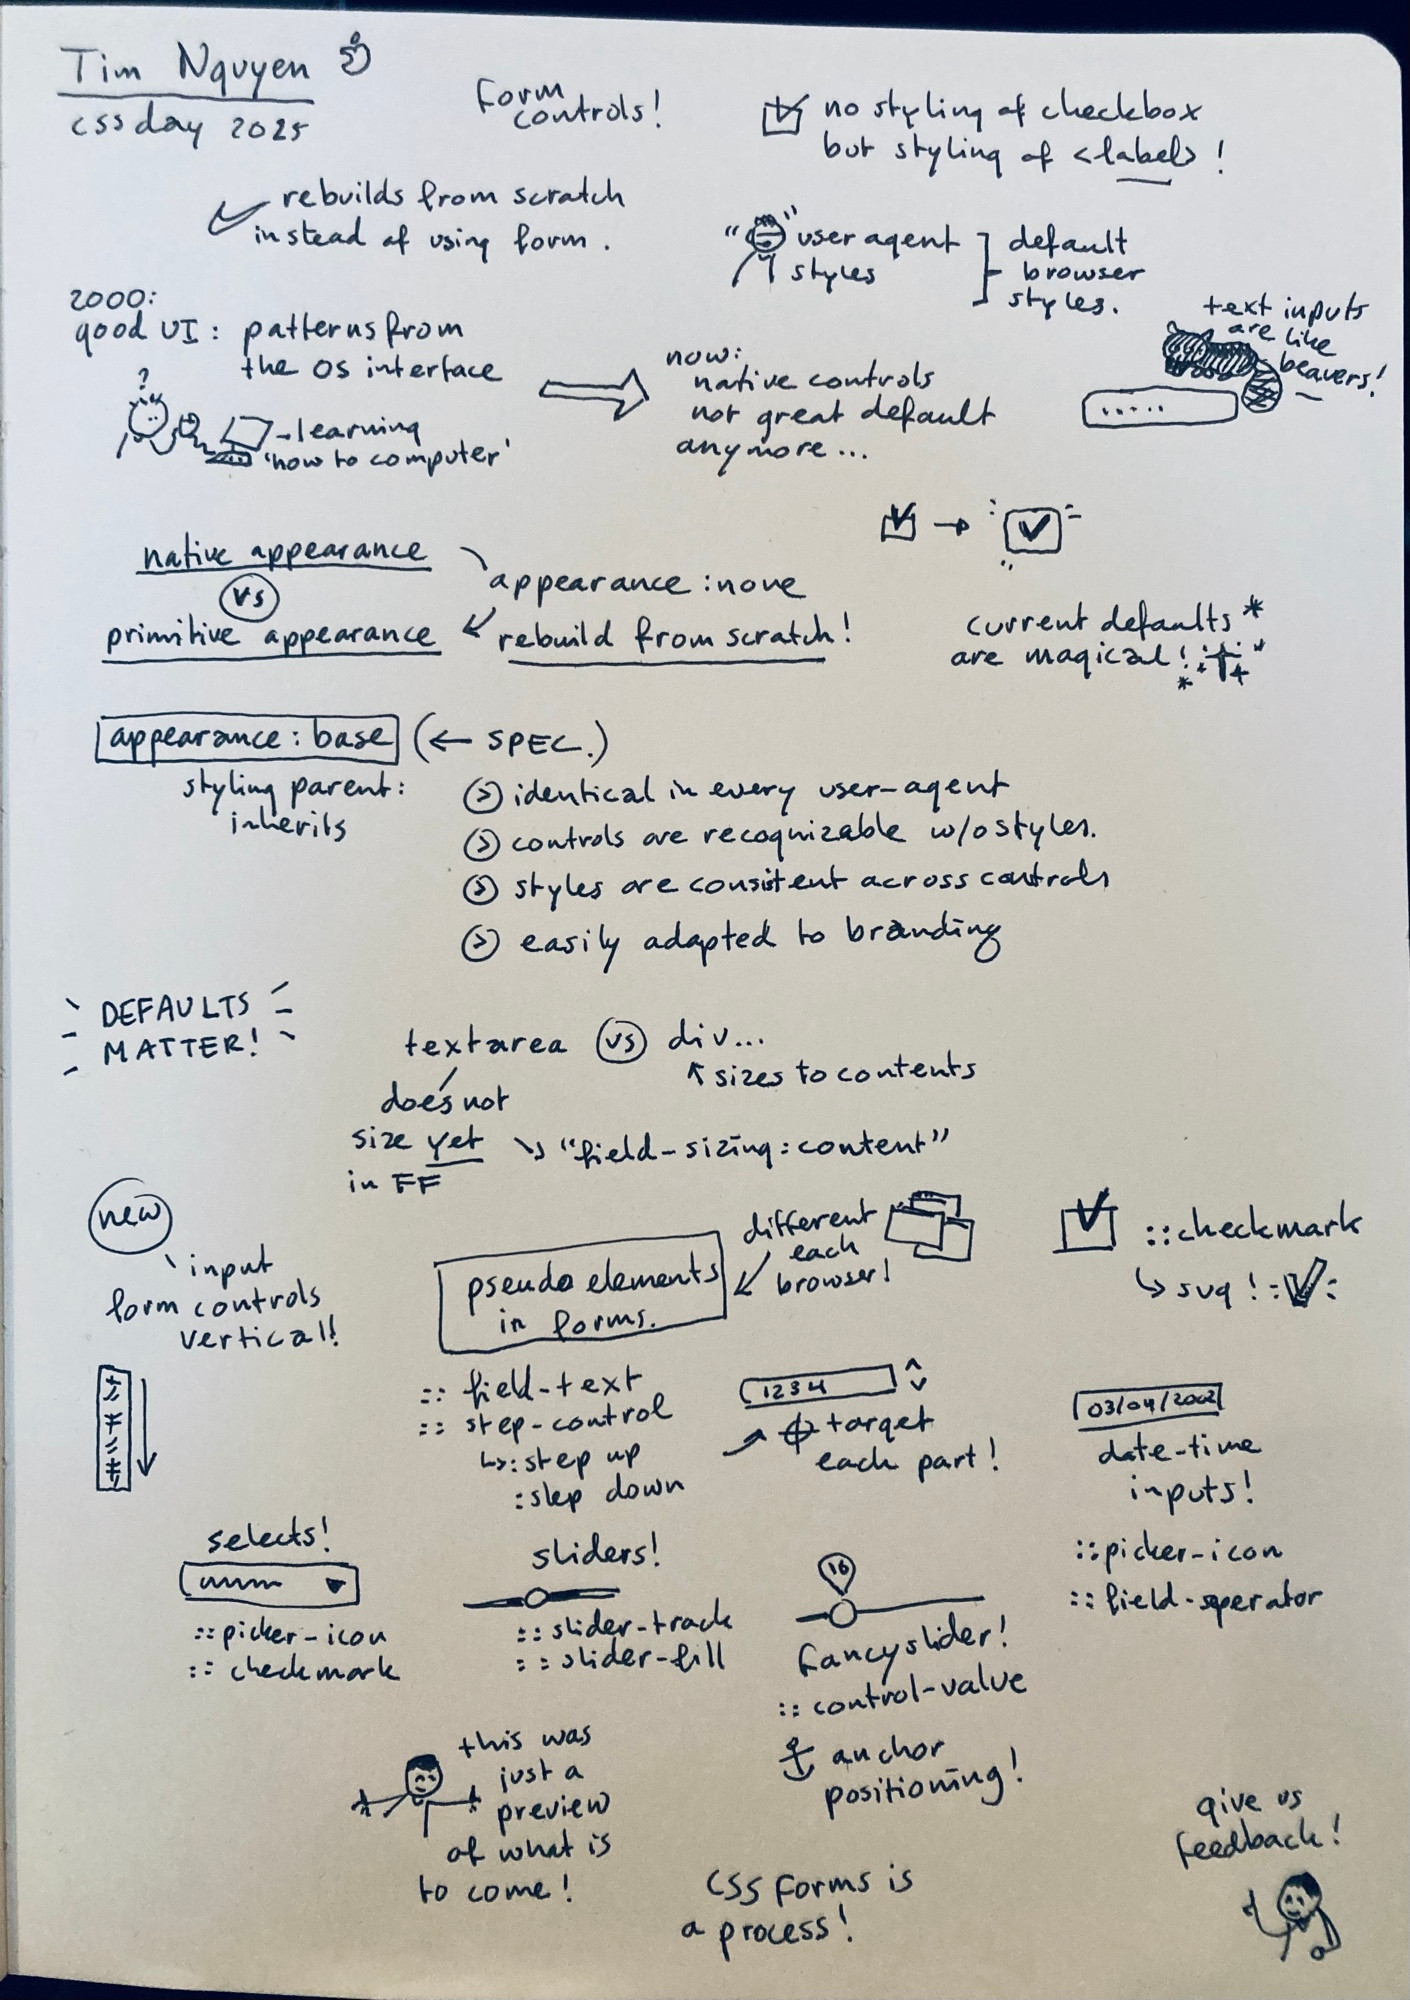 Tim Nguyen
cssday 2025
Form
controls!
no styling of checkbox
but styling of <label>!
rebuilds from scratch
instead of using form.
" " user agent
styles
default
browser
styles.
2000:
good UI: patterns from
the OS interface
?
learning
'how to computer'
now:
native controls
not great default
anymore...
text inputs
are like
beavers!
.....
native appearance
vs
primitive appearance
appearance: none
rebuild from scratch!
current defaults *
are magical!
appearance: base (← SPEC.)
styling parent:
inherits
> identical in every user-agent
> controls are recognizable w/o styles.
> styles are consitent across controls
> easily adapted to branding
DEFAULTS
MATTER!
textarea vs div...
↑ sizes to contents
does not
size yet
in FF
↘ "field-sizing: content"
new
input
form controls
vertical!
pseudo elements
in forms.
different
each
browser!
::checkmark
↳ svg!
:: field-text
:: step-control
↳ : step up
: step down
1234
target
each part!
03/04/2002
date-time
inputs!
::picker-icon
::field-seperator
selects!
::picker-icon
::checkmark
sliders!
::slider-track
::slider-fill
16
fancy slider!
::control-value
anchor
positioning!
this was
just a
preview
of what is
to come!
CSS Forms is
a process!
give us
feedback!